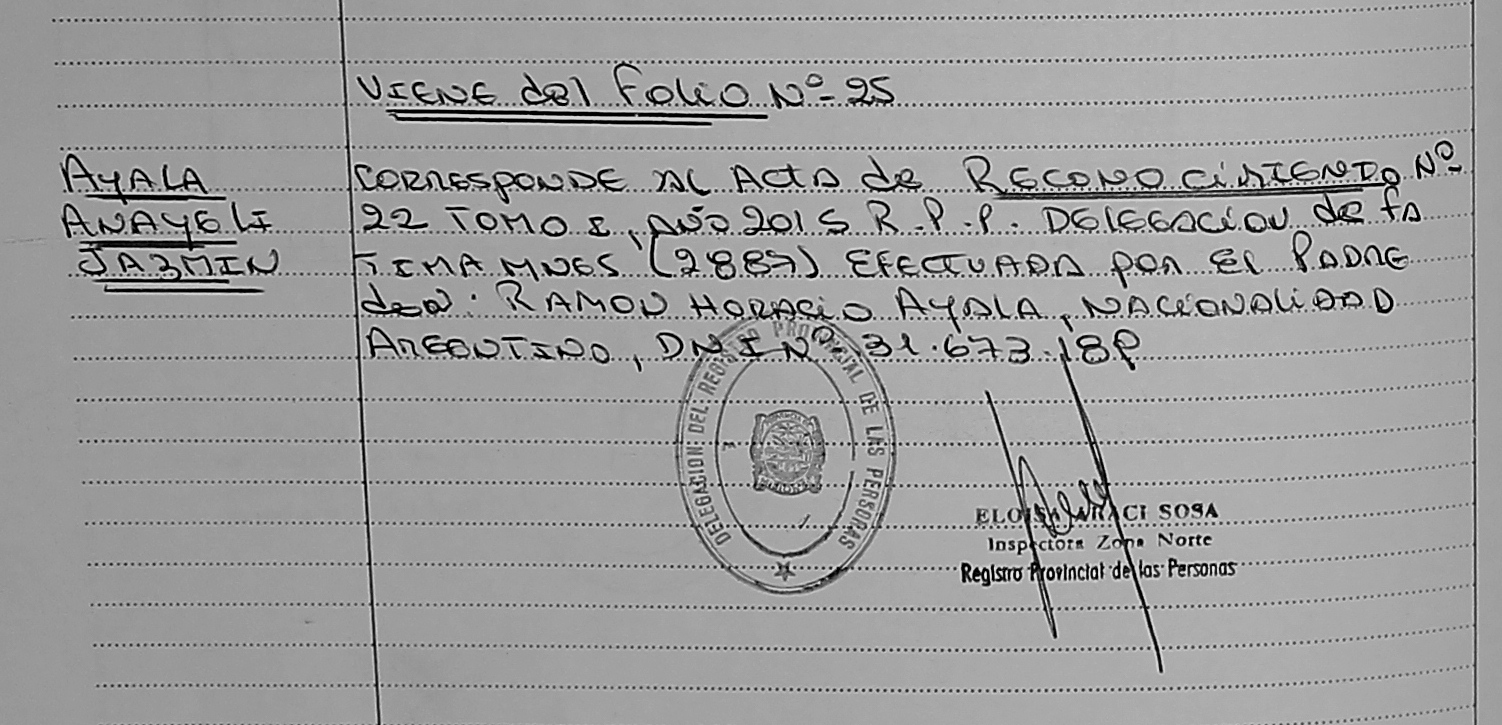 VIENE del Folio Nº 25
AYALA
ANAYELI
JAZMIN
CORRESPONDE AL ACTA de RECONOCIMIENTO Nº
22 TOMO I, AÑO 2015 R.P.P. DELEGACION de FA
TIMA MNES (2887) EFECTUADA POR EL PADRE
RAMON HORACIO AYALA, NACIONALIDAD
ARGENTINO, DNI Nº 31.673.189
DELEGACION DEL REGISTRO PROVINCIAL DE LAS PERSONAS
ELOISA ARACI SOSA
Inspectora Zona Norte
Registro Provincial de las Personas